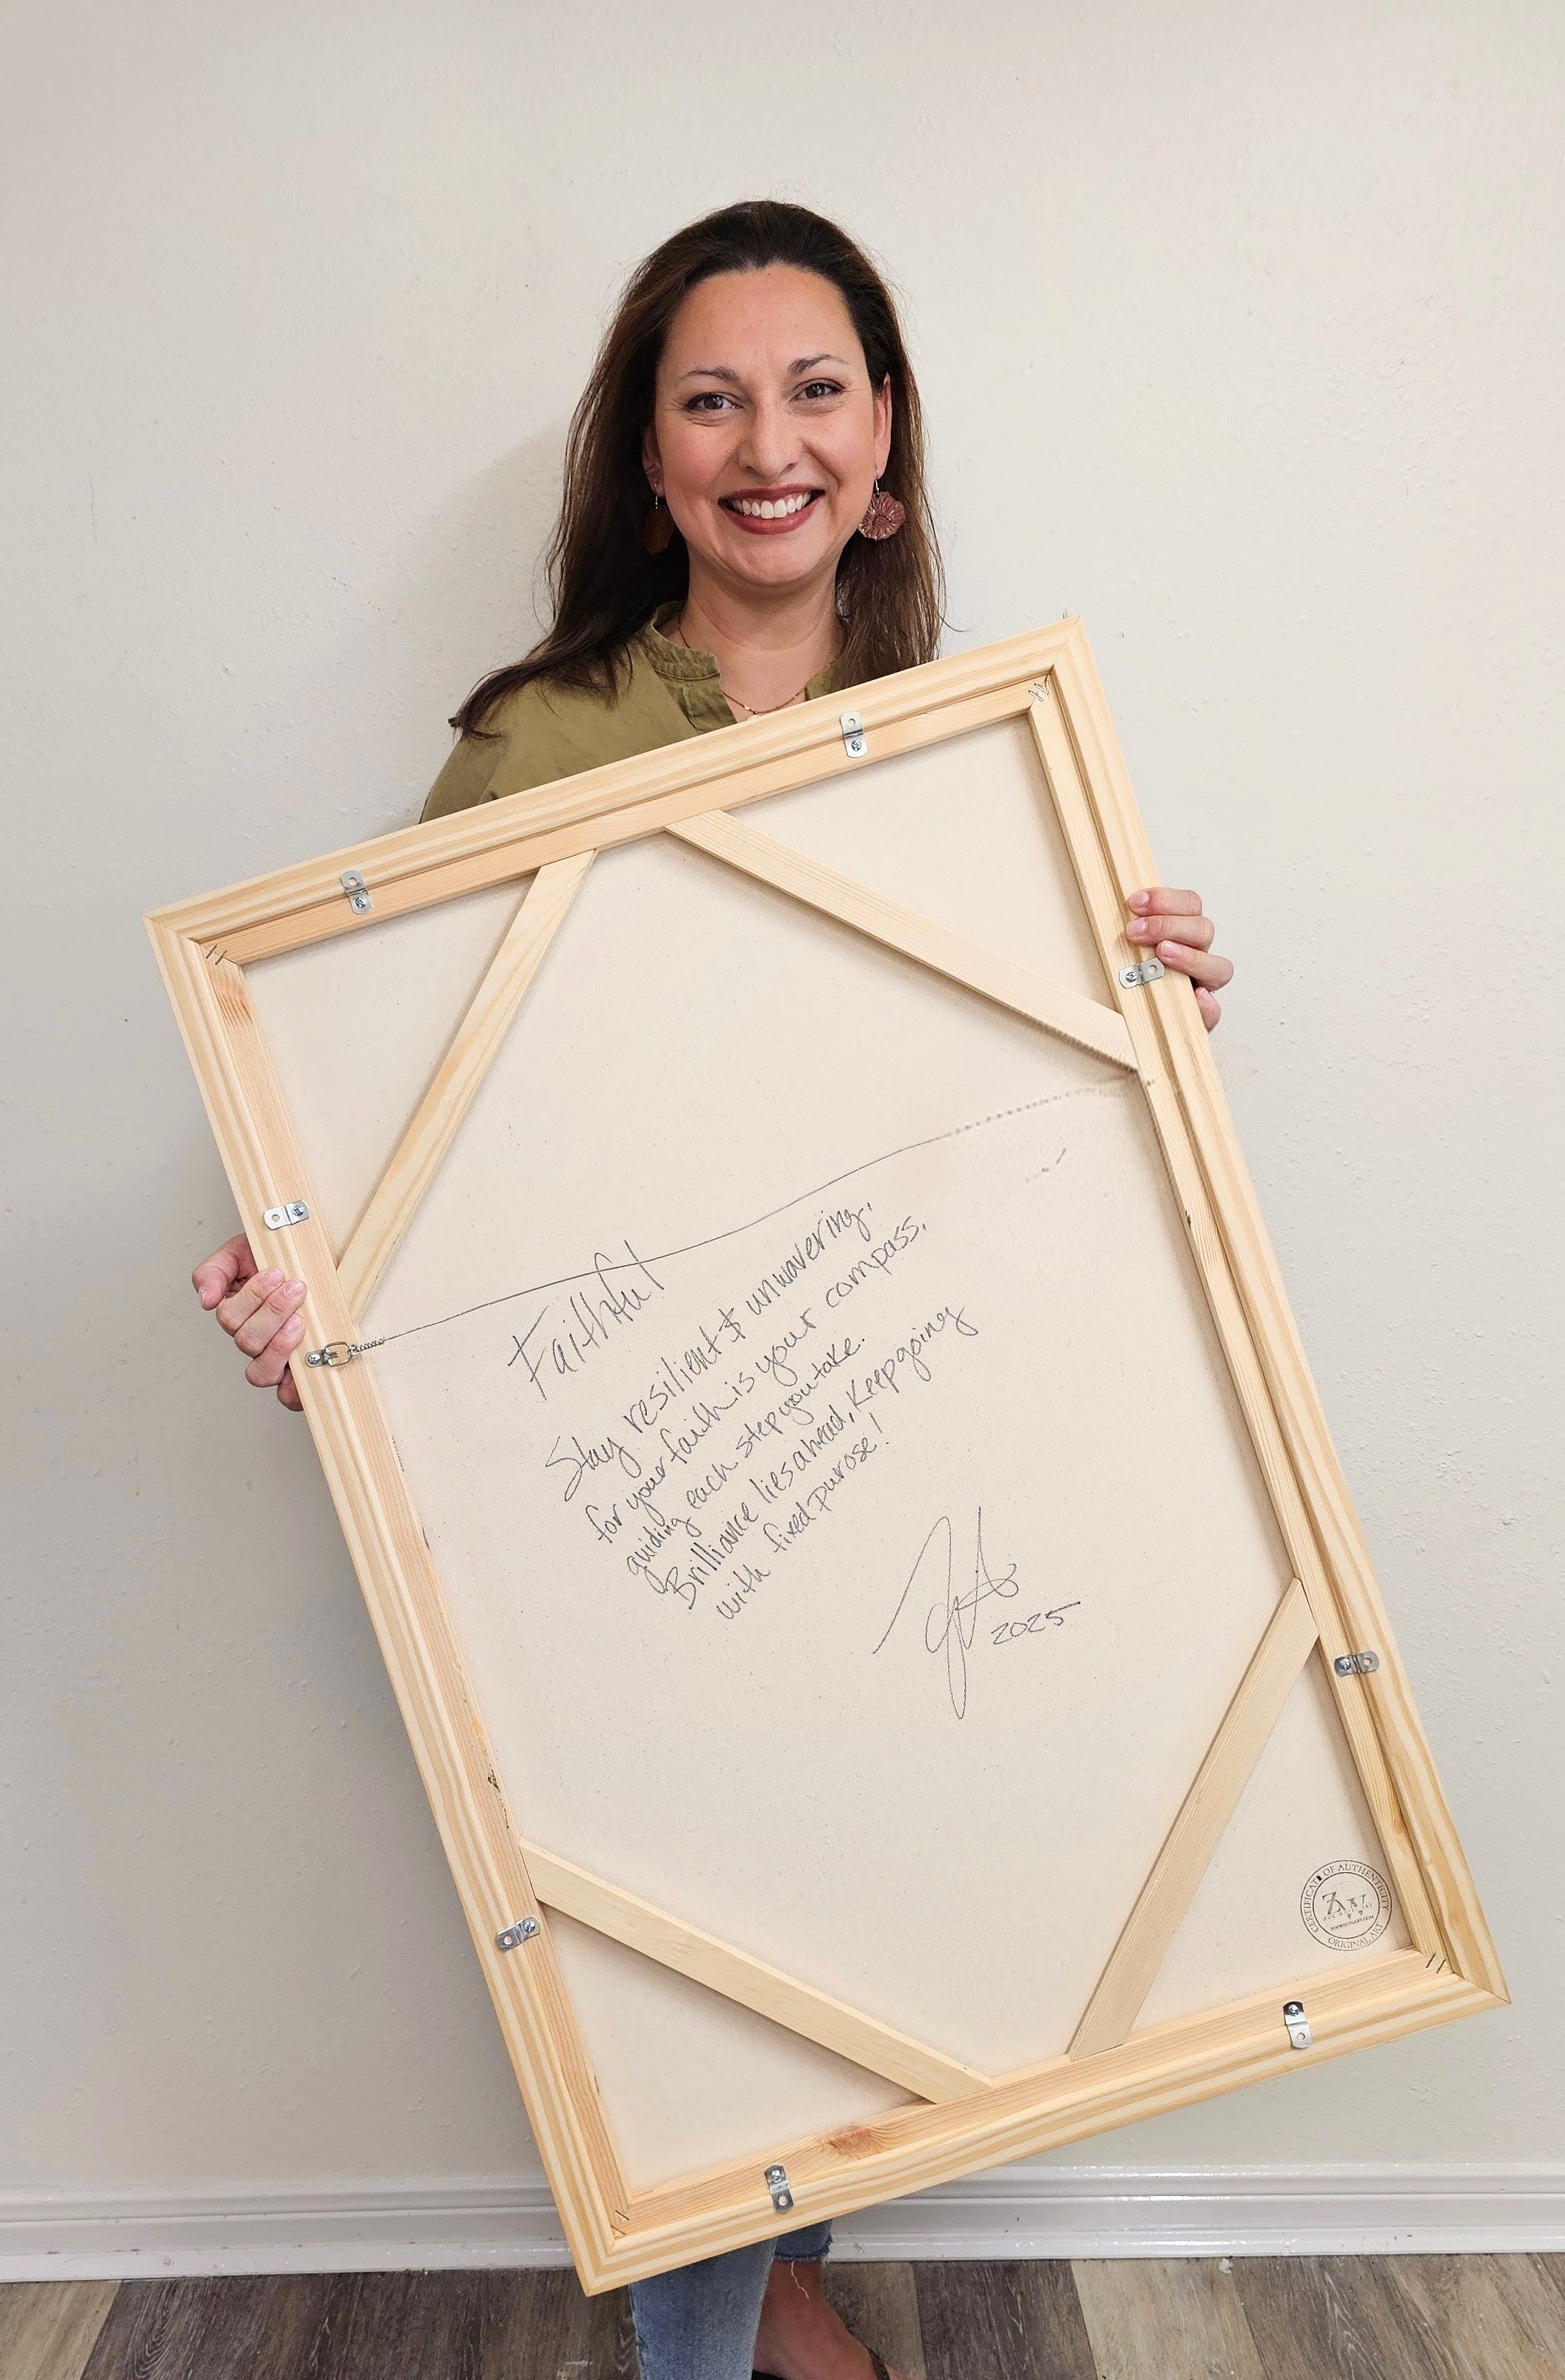 Faithful
Stay resilient & unwavering,
for your faith is your compass,
guiding each step you take.
Brilliance lies ahead, Keep going
with fixed purose!
2025
CERTIFICATE OF AUTHENTICITY
ZW
ORIGINAL ART